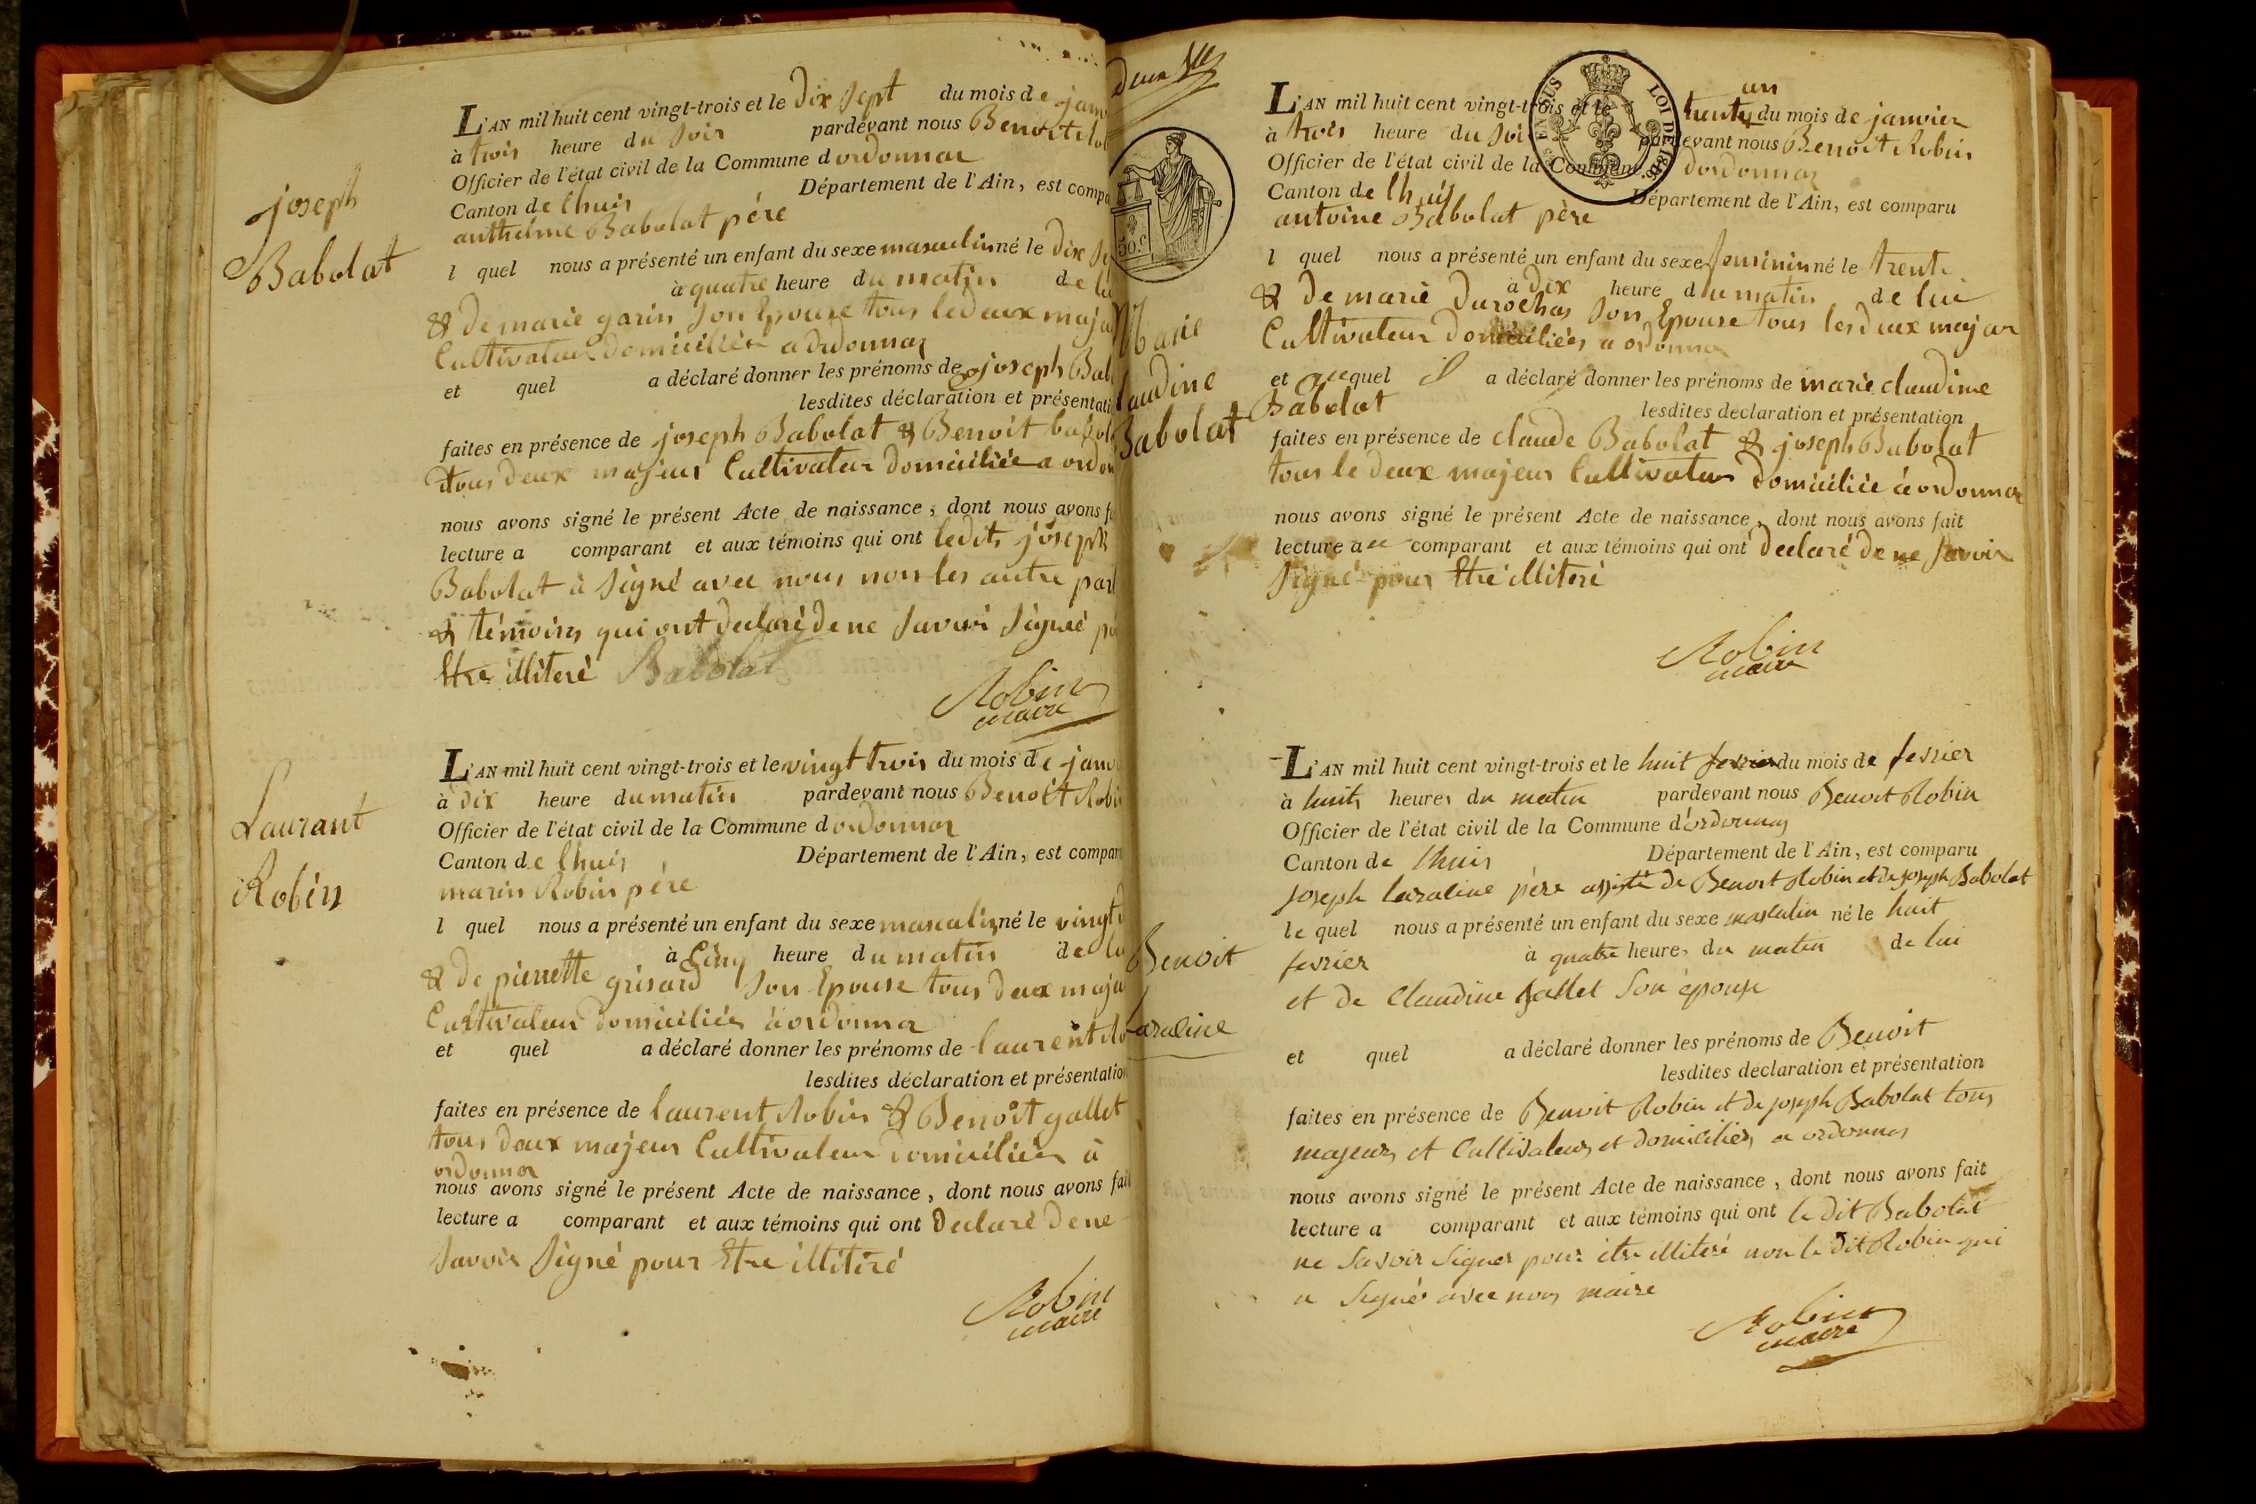 joseph
Babolat
L'AN mil huit cent vingt-trois et le dix sept du mois de janv
à trois heure du soir pardevant nous Benoit Rob
Officier de l'état civil de la Commune d ordonnaz
Canton de lhuis Département de l'Ain, est compa
anthelme Babolat pére
l quel nous a présenté un enfant du sexe masculin né le dix se
à quatre heure du matin de lui
& de marie garin son Epouse tous le deux maje
Cultivateur domiciliés a ordonnaz
et quel a déclaré donner les prénoms de joseph Bab
lesdites déclaration et présentati
faites en présence de joseph Babolat & Benoit babol
tous deux majeur Cultivateur domiciliée a ordon
nous avons signé le présent Acte de naissance, dont nous avons f
lecture a comparant et aux témoins qui ont ledit joseph
Babolat à signé avec nous non les autre part
& témoins qui ont declaré de ne savoir signé po
Etre illiteré Babolat
Robin
maire
Laurant
Robin
L'AN mil huit cent vingt-trois et le vingt trois du mois de janv
à dix heure du matin pardevant nous Benoit Robin
Officier de l'état civil de la Commune d ordonnaz
Canton de lhuis Département de l'Ain, est comparu
marin Robin pére
l quel nous a présenté un enfant du sexe masculin né le vingt
à Cinq heure du matin de lu
& de pierrette grisard son Epouse tous deux maje
Cultivateur domiciliés à ordonnaz
et quel a déclaré donner les prénoms de laurent Ro
lesdites déclaration et présentation
faites en présence de laurent Robin & Benoit gallet
tous deux majeur Cultivateur domiciliés à
ordonnaz
nous avons signé le présent Acte de naissance, dont nous avons fait
lecture a comparant et aux témoins qui ont declaré de ne
savoir signé pour Etre illiteré
Robin
maire
50 c
Marie
claudine
Babolat
EN SUS LOI DE 1816
L'AN mil huit cent vingt-trois et le trente un du mois de janvier
à trois heure du soir pardevant nous Benoit Robin
Officier de l'état civil de la Commune dordonnaz
Canton de lhuis Département de l'Ain, est comparu
antoine Babolat père
l quel nous a présenté un enfant du sexe feminin né le trente
à dix heure du matin de lui
& de marie Durochas son Epouse tous les deux majeur
Cultivateur domiciliés a ordonnaz
et au quel il a déclaré donner les prénoms de marie claudine
Babolat lesdites déclaration et présentation
faites en présence de claude Babolat & joseph Babolat
tous le deux majeur Cultivateur domiciliée à ordonnaz
nous avons signé le présent Acte de naissance, dont nous avons fait
lecture au comparant et aux témoins qui ont declaré de ne savoir
signé pour Etre illiteré
Robin
maire
Benoit
L'AN mil huit cent vingt-trois et le huit du mois de fevrier
à huit heures du matin pardevant nous Benoit Robin
Officier de l'état civil de la Commune d'ordonnaz
Canton de lhuis Département de l'Ain, est comparu
joseph père assisté de Benoit Robin et de joseph Babolat
le quel nous a présenté un enfant du sexe masculin né le huit
fevrier à quatre heures du matin de lui
et de Claudine gallet son épouse
et quel a déclaré donner les prénoms de Benoit
lesdites déclaration et présentation
faites en présence de Benoit Robin et de joseph Babolat tous
majeurs et Cultivateurs et domiciliés a ordonnaz
nous avons signé le présent Acte de naissance, dont nous avons fait
lecture a comparant et aux témoins qui ont le dit Babolat
ne savoir signer pour etre illiteré non le dit Robin qui
a signé avec nous maire
Robin
maire